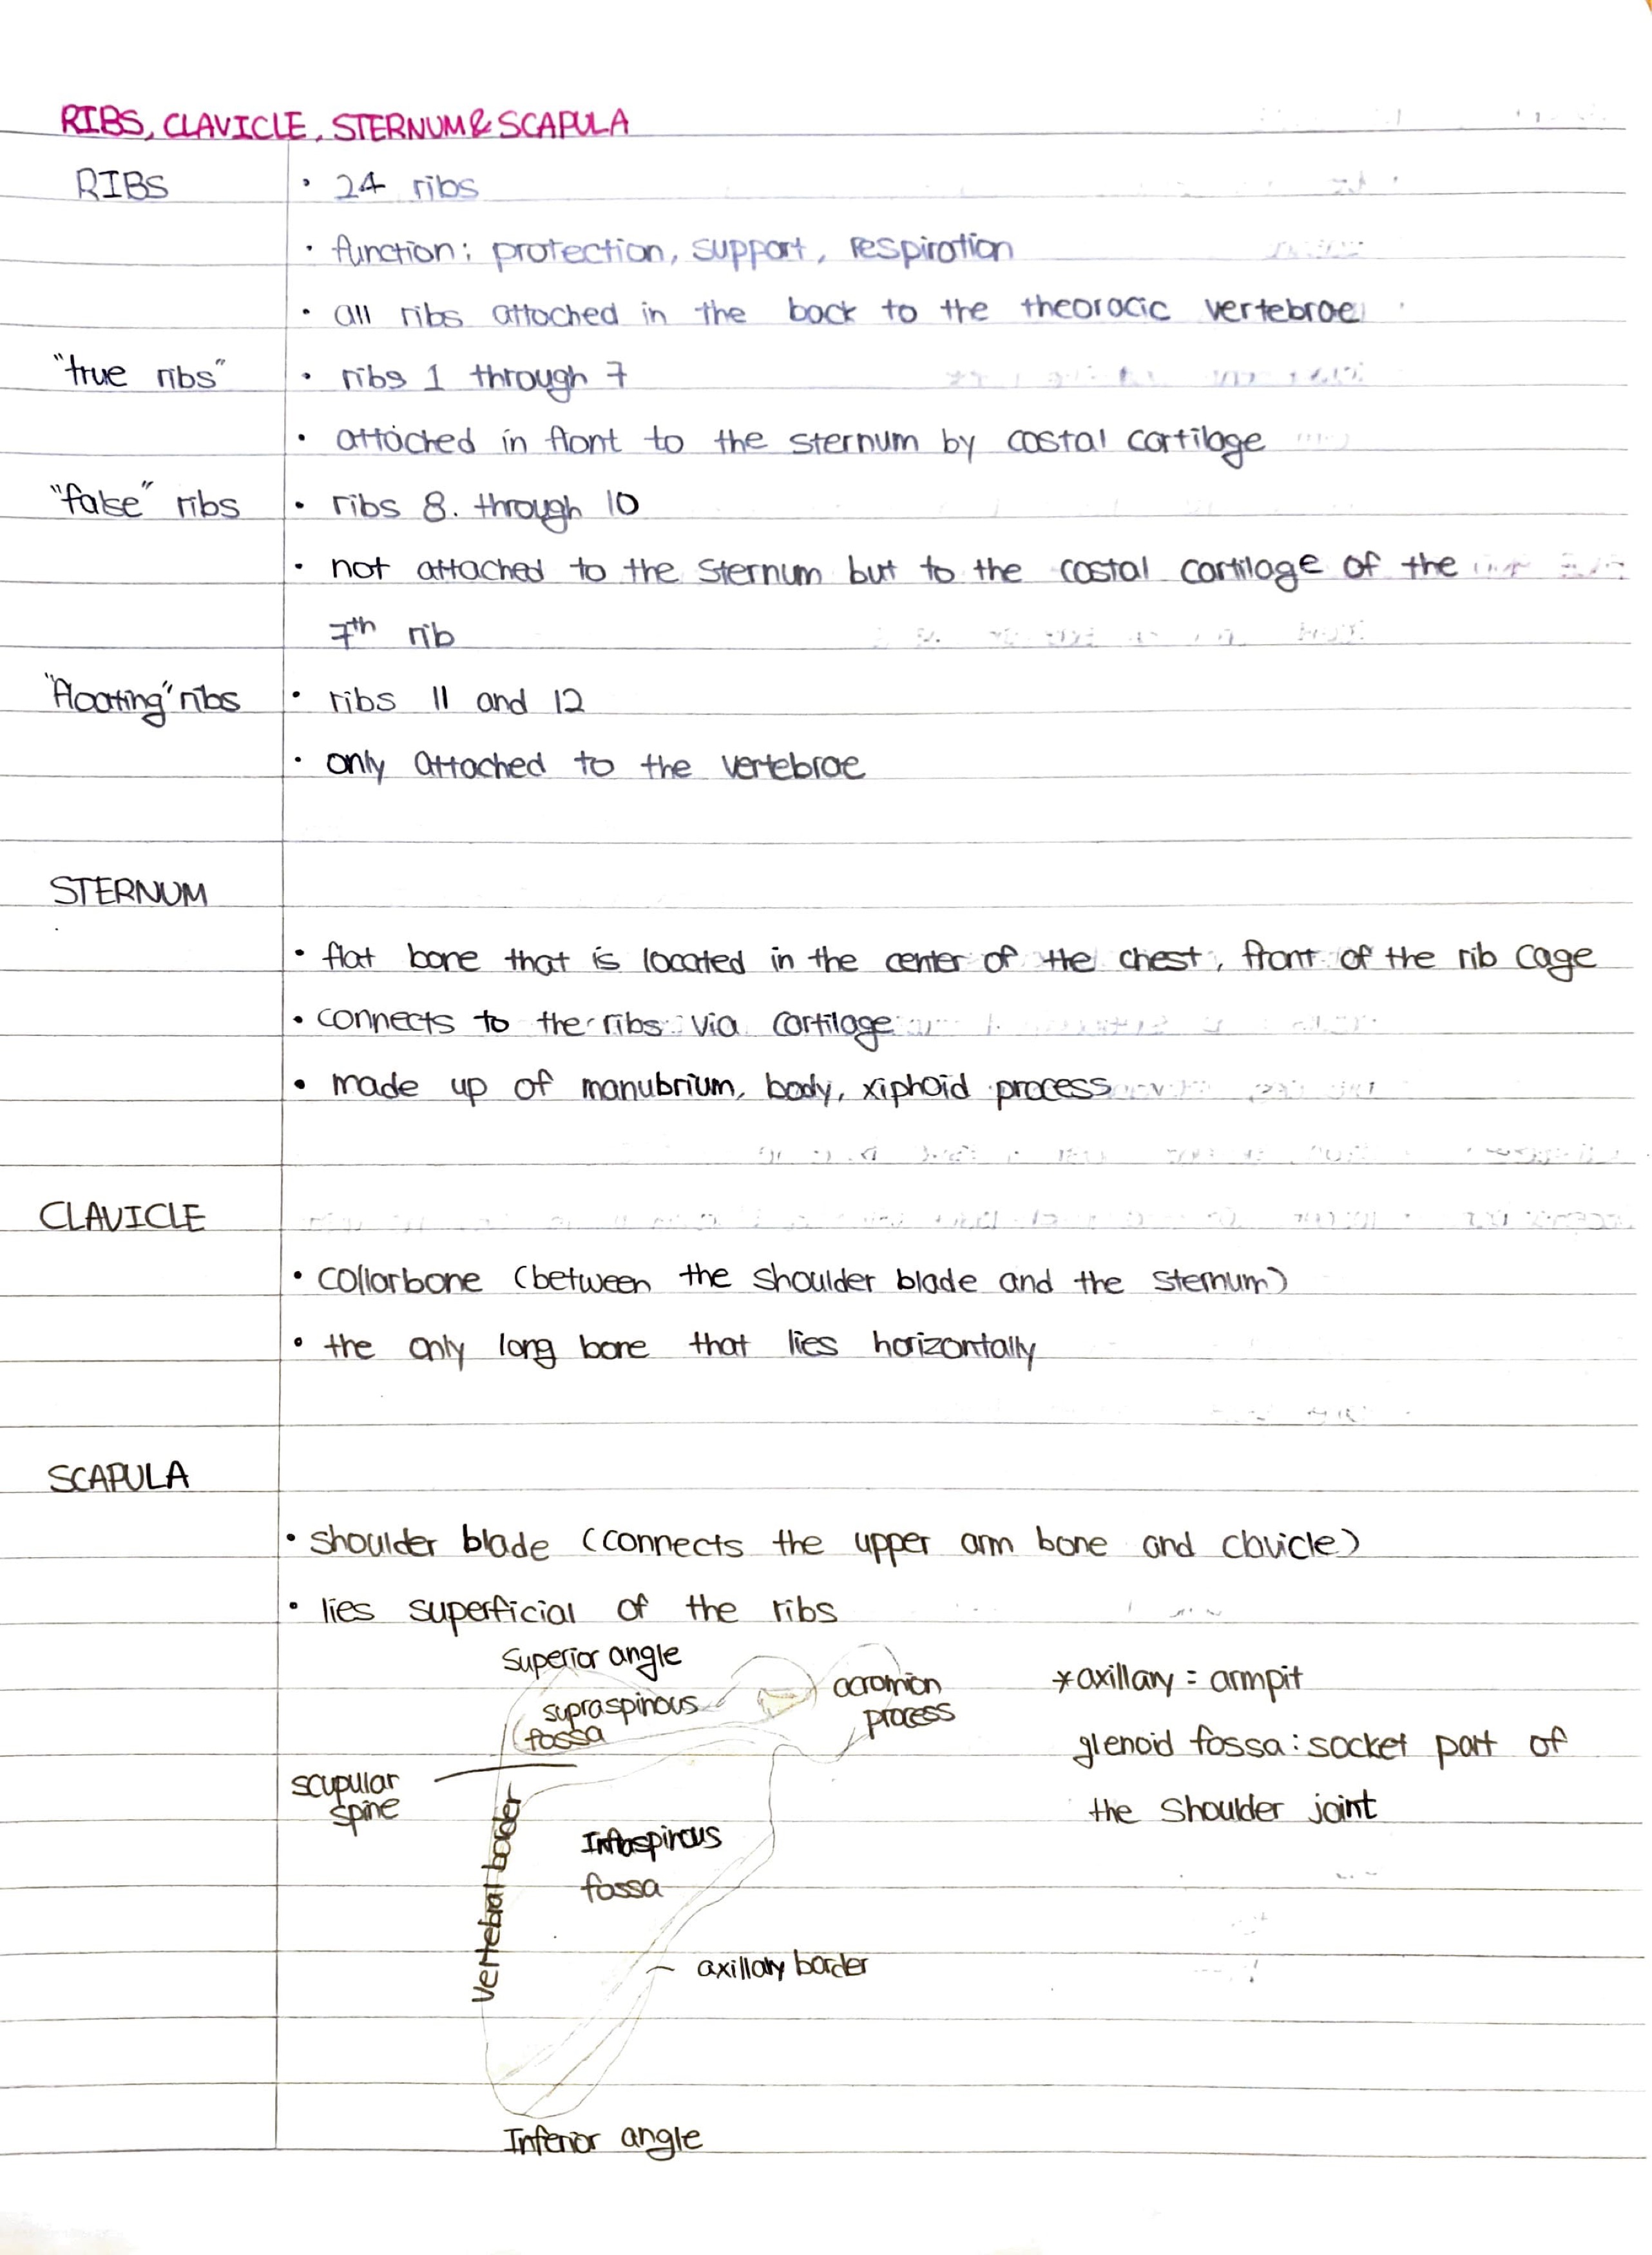 RIBS, CLAVICLE, STERNUM & SCAPULA
RIBS • 24 ribs
• function: protection, support, respiration
• all ribs attached in the back to the theoracic vertebrae
"true ribs" • ribs 1 through 7
• attached in front to the sternum by costal cartilage
"false" ribs • ribs 8. through 10
• not attached to the sternum but to the costal cartilage of the
7th rib
"floating" ribs • ribs 11 and 12
• only attached to the vertebrae
STERNUM
• flat bone that is located in the center of the chest, front of the rib cage
• connects to the ribs via cartilage
• made up of manubrium, body, xiphoid process
CLAVICLE
• collarbone (between the shoulder blade and the sternum)
• the only long bone that lies horizontally
SCAPULA
• shoulder blade (connects the upper arm bone and clavicle)
• lies superficial of the ribs
Superior angle
supraspinous
fossa
acromion
process
*axillary = armpit
glenoid fossa: socket part of
the shoulder joint
scapular
spine
Vertebral border
Infraspinous
fossa
axillary border
Inferior angle